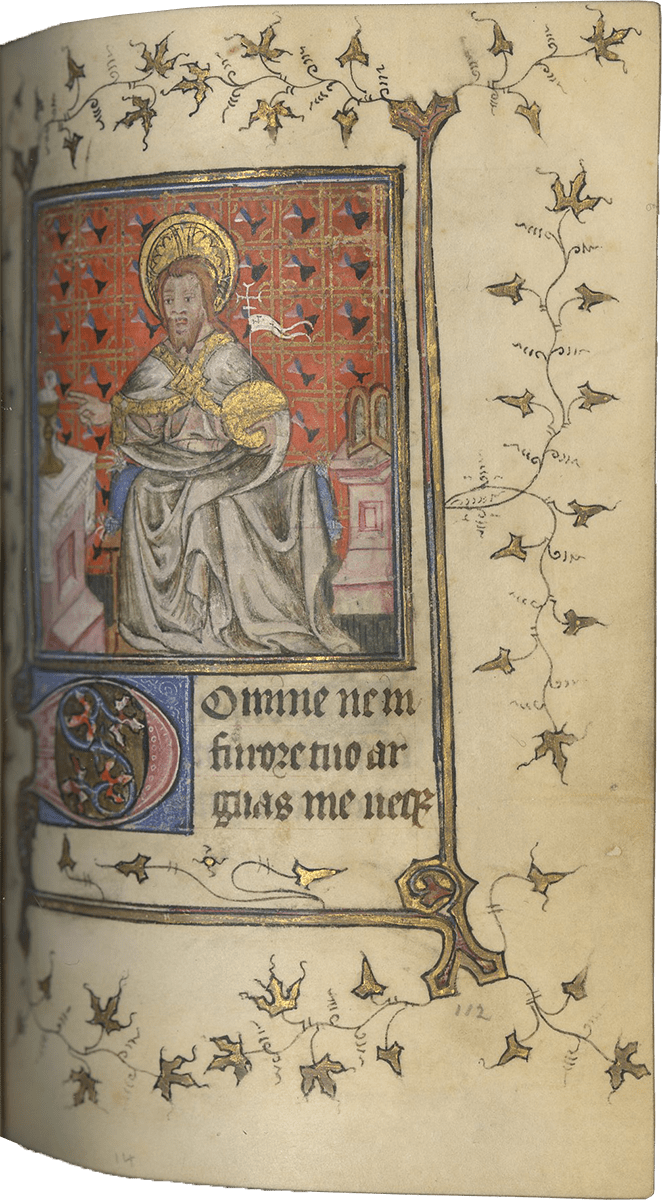 Domine ne in
furore tuo ar
guas me neqꝫ
112
14